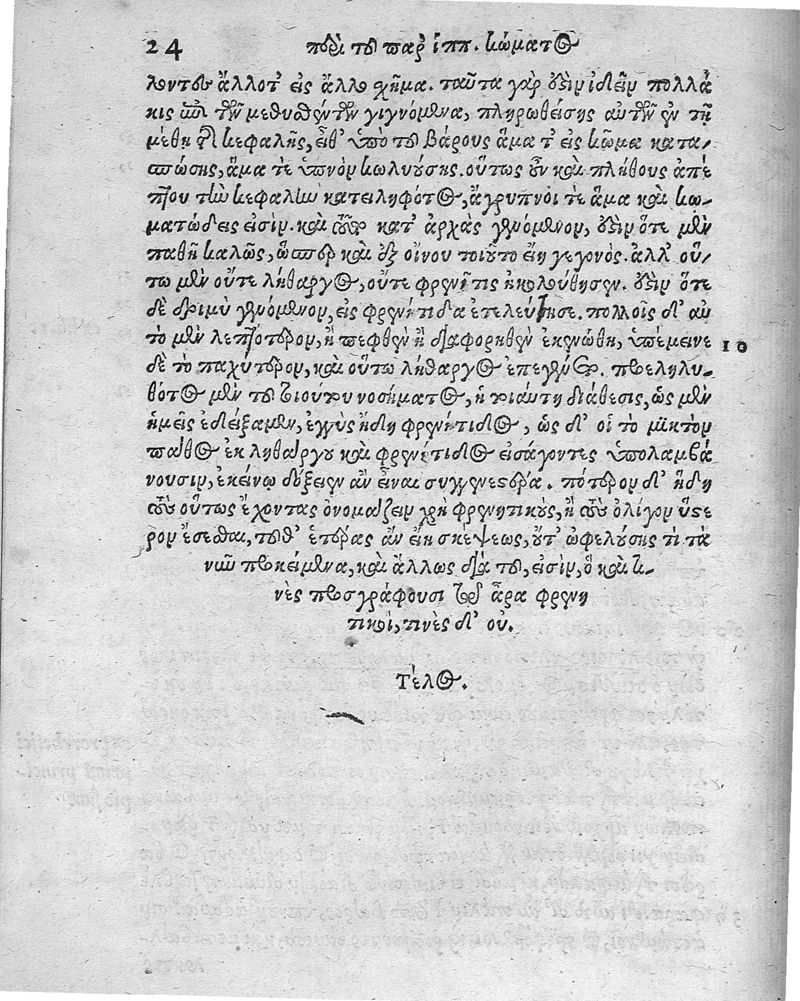 24 περὶ τοῦ παρ' ἱππ. κώματος
λοντος ἄλλοτ' εἰς ἄλλο χῆμα. ταῦτα γὰρ ἔςιν ἰδεῖν πολλά
κις ἐπὶ τῶν μεθυσθέντων γιγνόμενα, πληρωθείσης αὐτῶν ἐν τῇ
μέθῃ τῆς κεφαλῆς, εἶθ' ὑπὸ τοῦ βάρους ἅμα τ' εἰς κῶμα κατα-
πτώσης, ἅμα τε ὕπνον κωλυούσης. οὕτως οὖν καὶ πλήθους ἀπέ
πτου τὴν κεφαλὴν κατειληφότος, ἄγρυπνοι τε ἅμα καὶ κω-
ματώδεις εἰσίν. καὶ κατ' ἀρχὰς γενόμενον, ἔςιν ὅτε μὲν
παθῇ καλῶς, ὥσπερ καὶ ἐξ οἴνου τοιοῦτο εἴη γεγονός. ἀλλ' οὕ-
τω μὲν οὔτε λήθαργος, οὔτε φρενῖτις ἠκολούθησεν. ἔςιν ὅτε
δὲ δριμὺ γενόμενον, εἰς φρενίτιδα ἐτελεύτησε. πολλοῖς δ' αὐ
τὸ μὲν λεπτότερον, ἢ πεφθὲν ἢ διαφορηθὲν ἐκενώθη, ὑπέμεινε 10
δὲ τὸ παχύτερον, καὶ οὕτω λήθαργος ἐπεγένετο. προεληλυ-
θότος μὲν τοῦ τοιούτου νοσήματος, ἡ τοιαύτη διάθεσις, ὡς μὲν
ἡμεῖς ἐδείξαμεν, ἐγγὺς ἤδη φρενίτιδος, ὡς δ' οἱ τὸ μικτὸν
πάθος ἐκ ληθάργου καὶ φρενίτιδος εἰσάγοντες ὑπολαμβά
νουσιν, ἐκείνῳ δόξειεν ἂν εἶναι συγγενεςέρα. πότερον δ' ἤδη
τοὺς οὕτως ἔχοντας ὀνομάζειν χρὴ φρενητικοὺς, ἢ τοὺς ὀλίγον ὕςε
ρον ἔσεσθαι, τοῦθ' ἑτέρας ἂν εἴη σκέψεως, οὔτ' ὠφελούσης τὶ τὰ
νῦν προκείμενα, καὶ ἄλλως διὰ τοῦ, εἰσίν, ὃ καὶ τι-
νὲς προσγράφουσι τὸ ἆρα φρενη
τικοί, τινὲς δ' οὔ.
Τέλος.